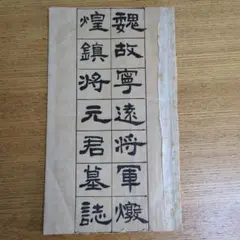 魏故寧遠將軍燉
煌鎮将元君墓誌